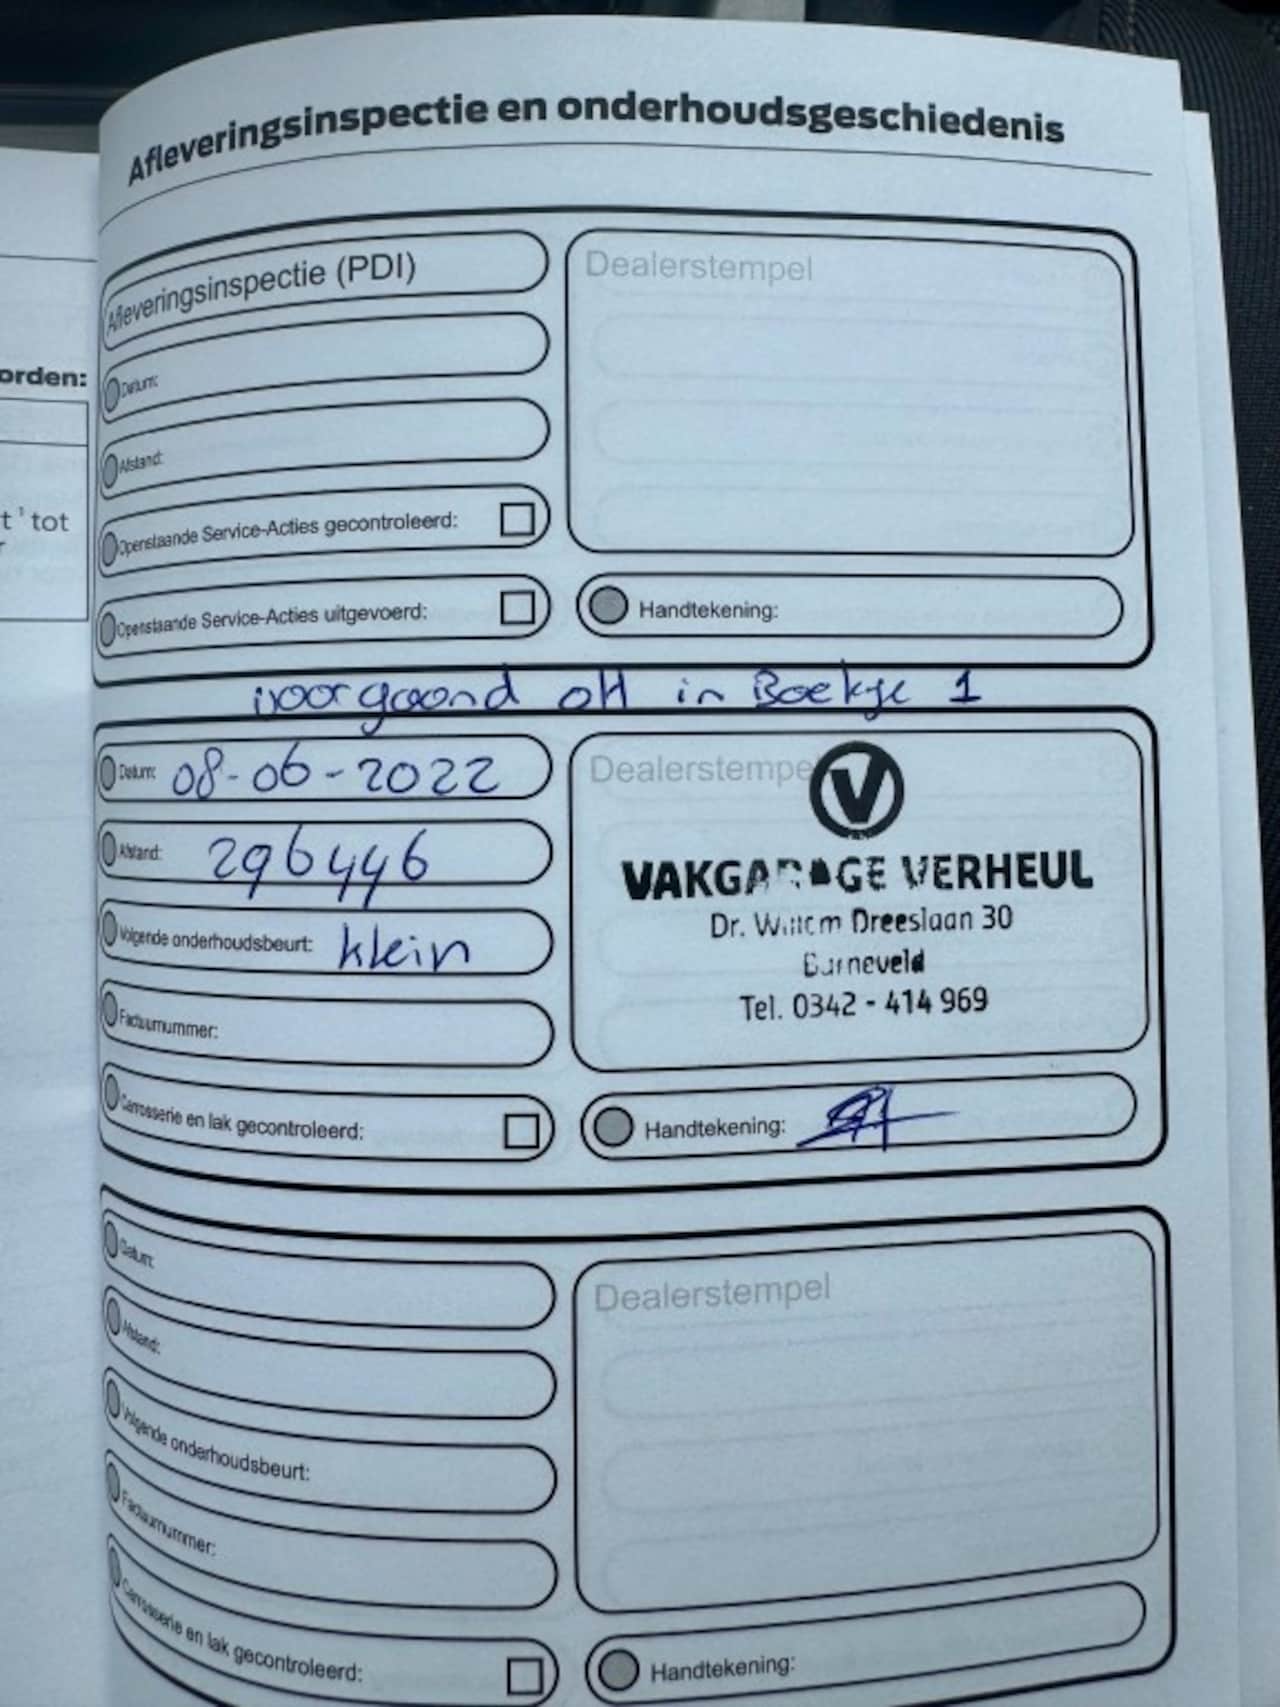 Afleveringsinspectie en onderhoudsgeschiedenis
orden:
t¹ tot
Afleveringsinspectie (PDI)
Datum:
Afstand:
Openstaande Service-Acties gecontroleerd:
Openstaande Service-Acties uitgevoerd:
Dealerstempel
Handtekening:
voorgaand oH in Boekje 1
Datum: 08-06-2022
Afstand: 296446
Volgende onderhoudsbeurt: klein
Factuurnummer:
Carrosserie en lak gecontroleerd:
Dealerstempel
V
VAKGARAGE VERHEUL
Dr. Willem Dreeslaan 30
Barneveld
Tel. 0342 - 414 969
Handtekening:
Datum:
Afstand:
Volgende onderhoudsbeurt:
Factuurnummer:
Carrosserie en lak gecontroleerd:
Dealerstempel
Handtekening: